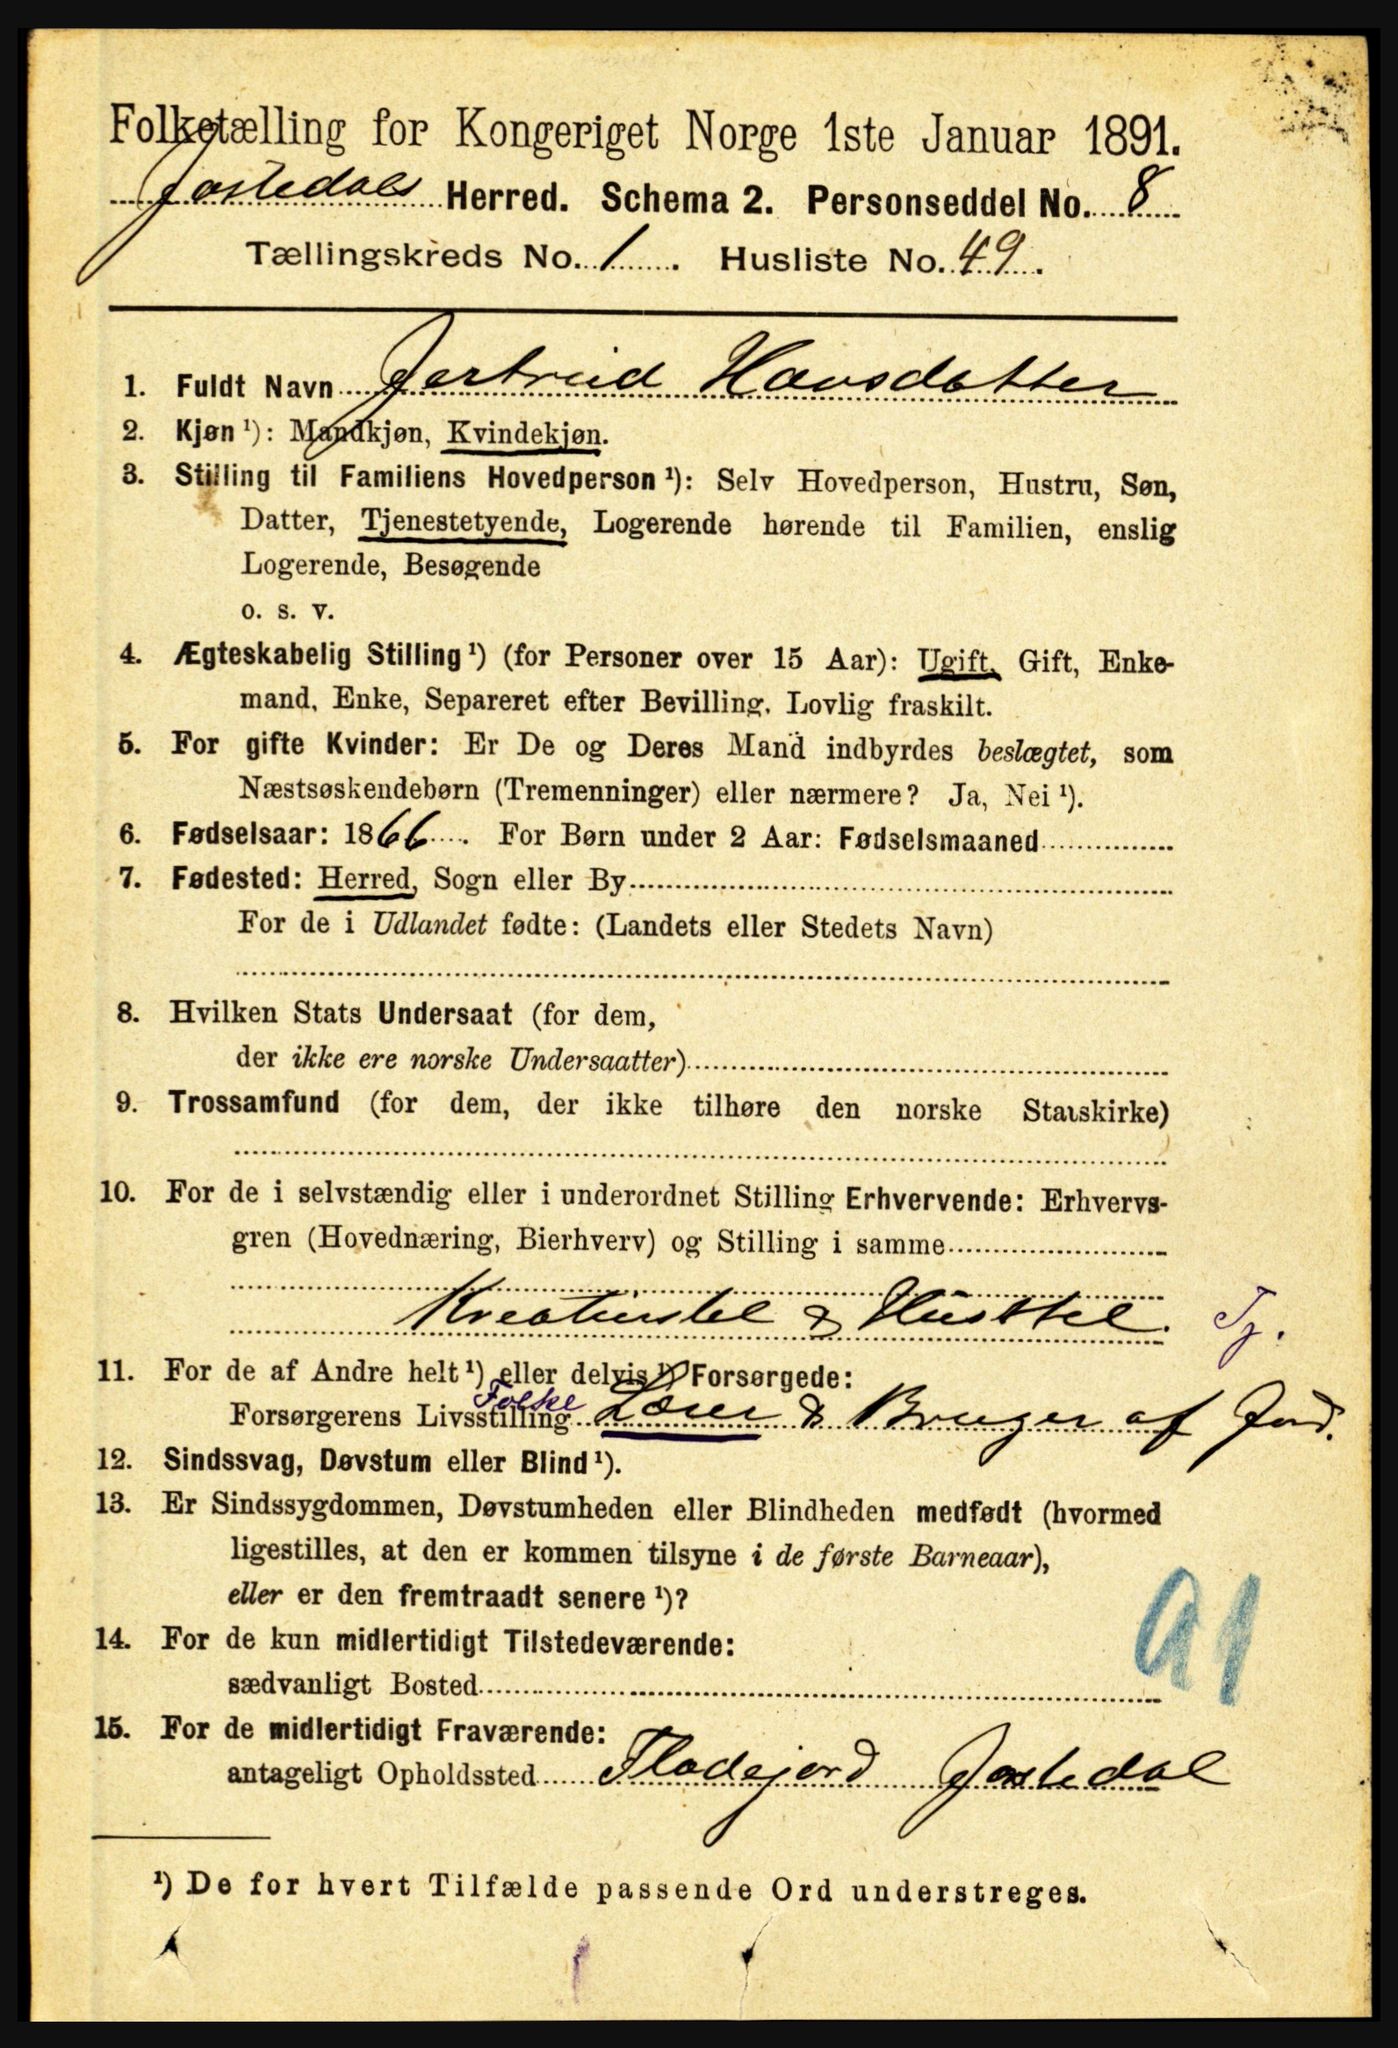 Folketælling for Kongeriget Norge 1ste Januar 1891.
Jostedals Herred. Schema 2. Personseddel No. 8
Tællingskreds No. 1. Husliste No. 49.
1. Fuldt Navn Jertrud Hansdatter
2. Kjøn ¹): Mandkjøn, Kvindekjøn.
3. Stilling til Familiens Hovedperson ¹): Selv Hovedperson, Hustru, Søn,
Datter, Tjenestetyende, Logerende hørende til Familien, enslig
Logerende, Besøgende
o. s. v.
4. Ægteskabelig Stilling ¹) (for Personer over 15 Aar): Ugift, Gift, Enke-
mand, Enke, Separeret efter Bevilling, Lovlig fraskilt.
5. For gifte Kvinder: Er De og Deres Mand indbyrdes beslægtet, som
Næstsøskendebørn (Tremenninger) eller nærmere? Ja, Nei ¹).
6. Fødselsaar: 1866. For Børn under 2 Aar: Fødselsmaaned
7. Fødested: Herred, Sogn eller By
For de i Udlandet fødte: (Landets eller Stedets Navn)
8. Hvilken Stats Undersaat (for dem,
der ikke ere norske Undersaatter)
9. Trossamfund (for dem, der ikke tilhøre den norske Statskirke)
10. For de i selvstændig eller i underordnet Stilling Erhvervende: Erhvervs-
gren (Hovednæring, Bierhverv) og Stilling i samme
Kreaturstel & Husstel. Tj.
11. For de af Andre helt ¹) eller delvis ¹) Forsørgede:
Folke
Forsørgerens Livsstilling Lærer & Bruger af Jord.
12. Sindssvag, Døvstum eller Blind ¹).
13. Er Sindssygdommen, Døvstumheden eller Blindheden medfødt (hvormed
ligestilles, at den er kommen tilsyne i de første Barneaar),
eller er den fremtraadt senere ¹)?
14. For de kun midlertidigt Tilstedeværende:
sædvanligt Bosted
15. For de midlertidigt Fraværende:
antageligt Opholdssted Fladejord Jostedal
¹) De for hvert Tilfælde passende Ord understreges.